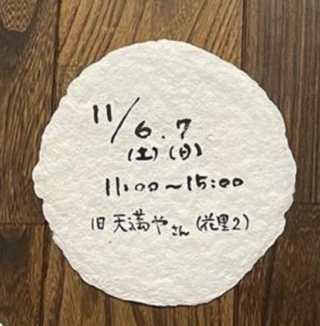 11/6.7
(土)(日)
11:00〜15:00
旧天満やさん(花里2)